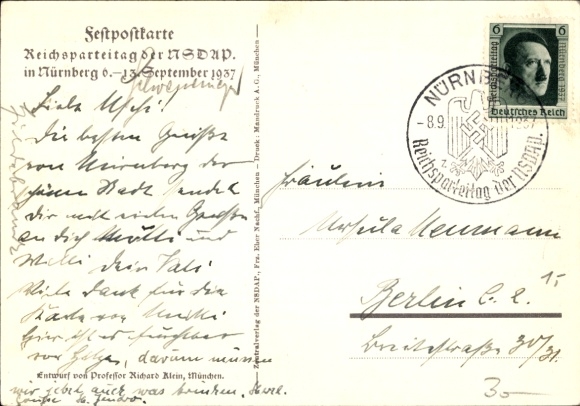 Festpostkarte
Reichsparteitag der NSDAP.
in Nürnberg 6.–13. September 1937
Liebe Uschi!
Die besten Grüße
von Nürnberg der
Stadt sendet
dir mit vielen Grüßen
an dich Mutti und
Willi dein Vati
Viele Dank für die
Karte von Mutti
hier ist es furchtbar
vor Hitze, darum müssen
wir jetzt auch was trinken. Herzl.
Entwurf von Professor Richard Klein, München.
Zentralverlag der NSDAP., Frz. Eher Nachf., München – Druck: Mandruck A.G., München
6 6
Reichsparteitag Nürnberg 1937
Deutsches Reich
NÜRNBERG
- 8.9. 1937
Z
Reichsparteitag der NSDAP.
Fräulein
Ursula Neumann
Berlin C. 2.
Breitestraße 30/31.
1,-